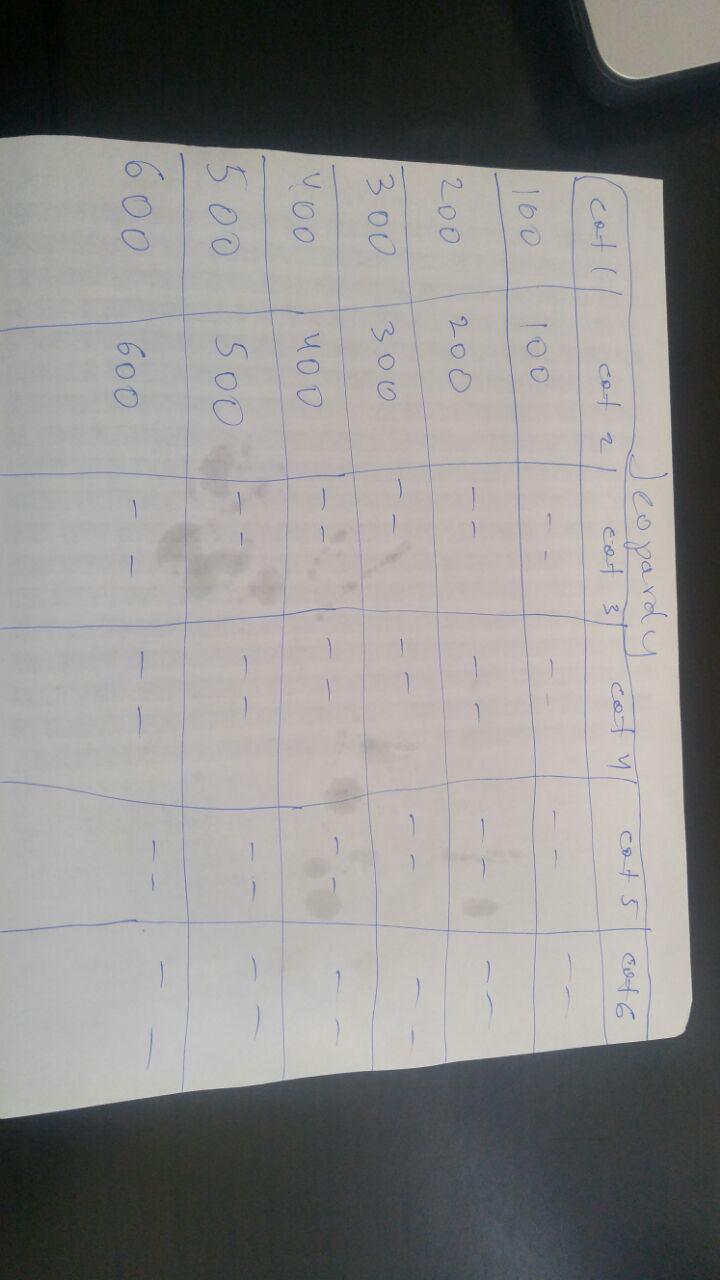 Jeopardy
cat 1 cat 2 cat 3 cat 4 cat 5 cat 6
100 100 -- -- -- --
200 200 -- -- -- --
300 300 -- -- -- --
400 400 -- -- -- --
500 500 -- -- -- --
600 600 -- -- -- --